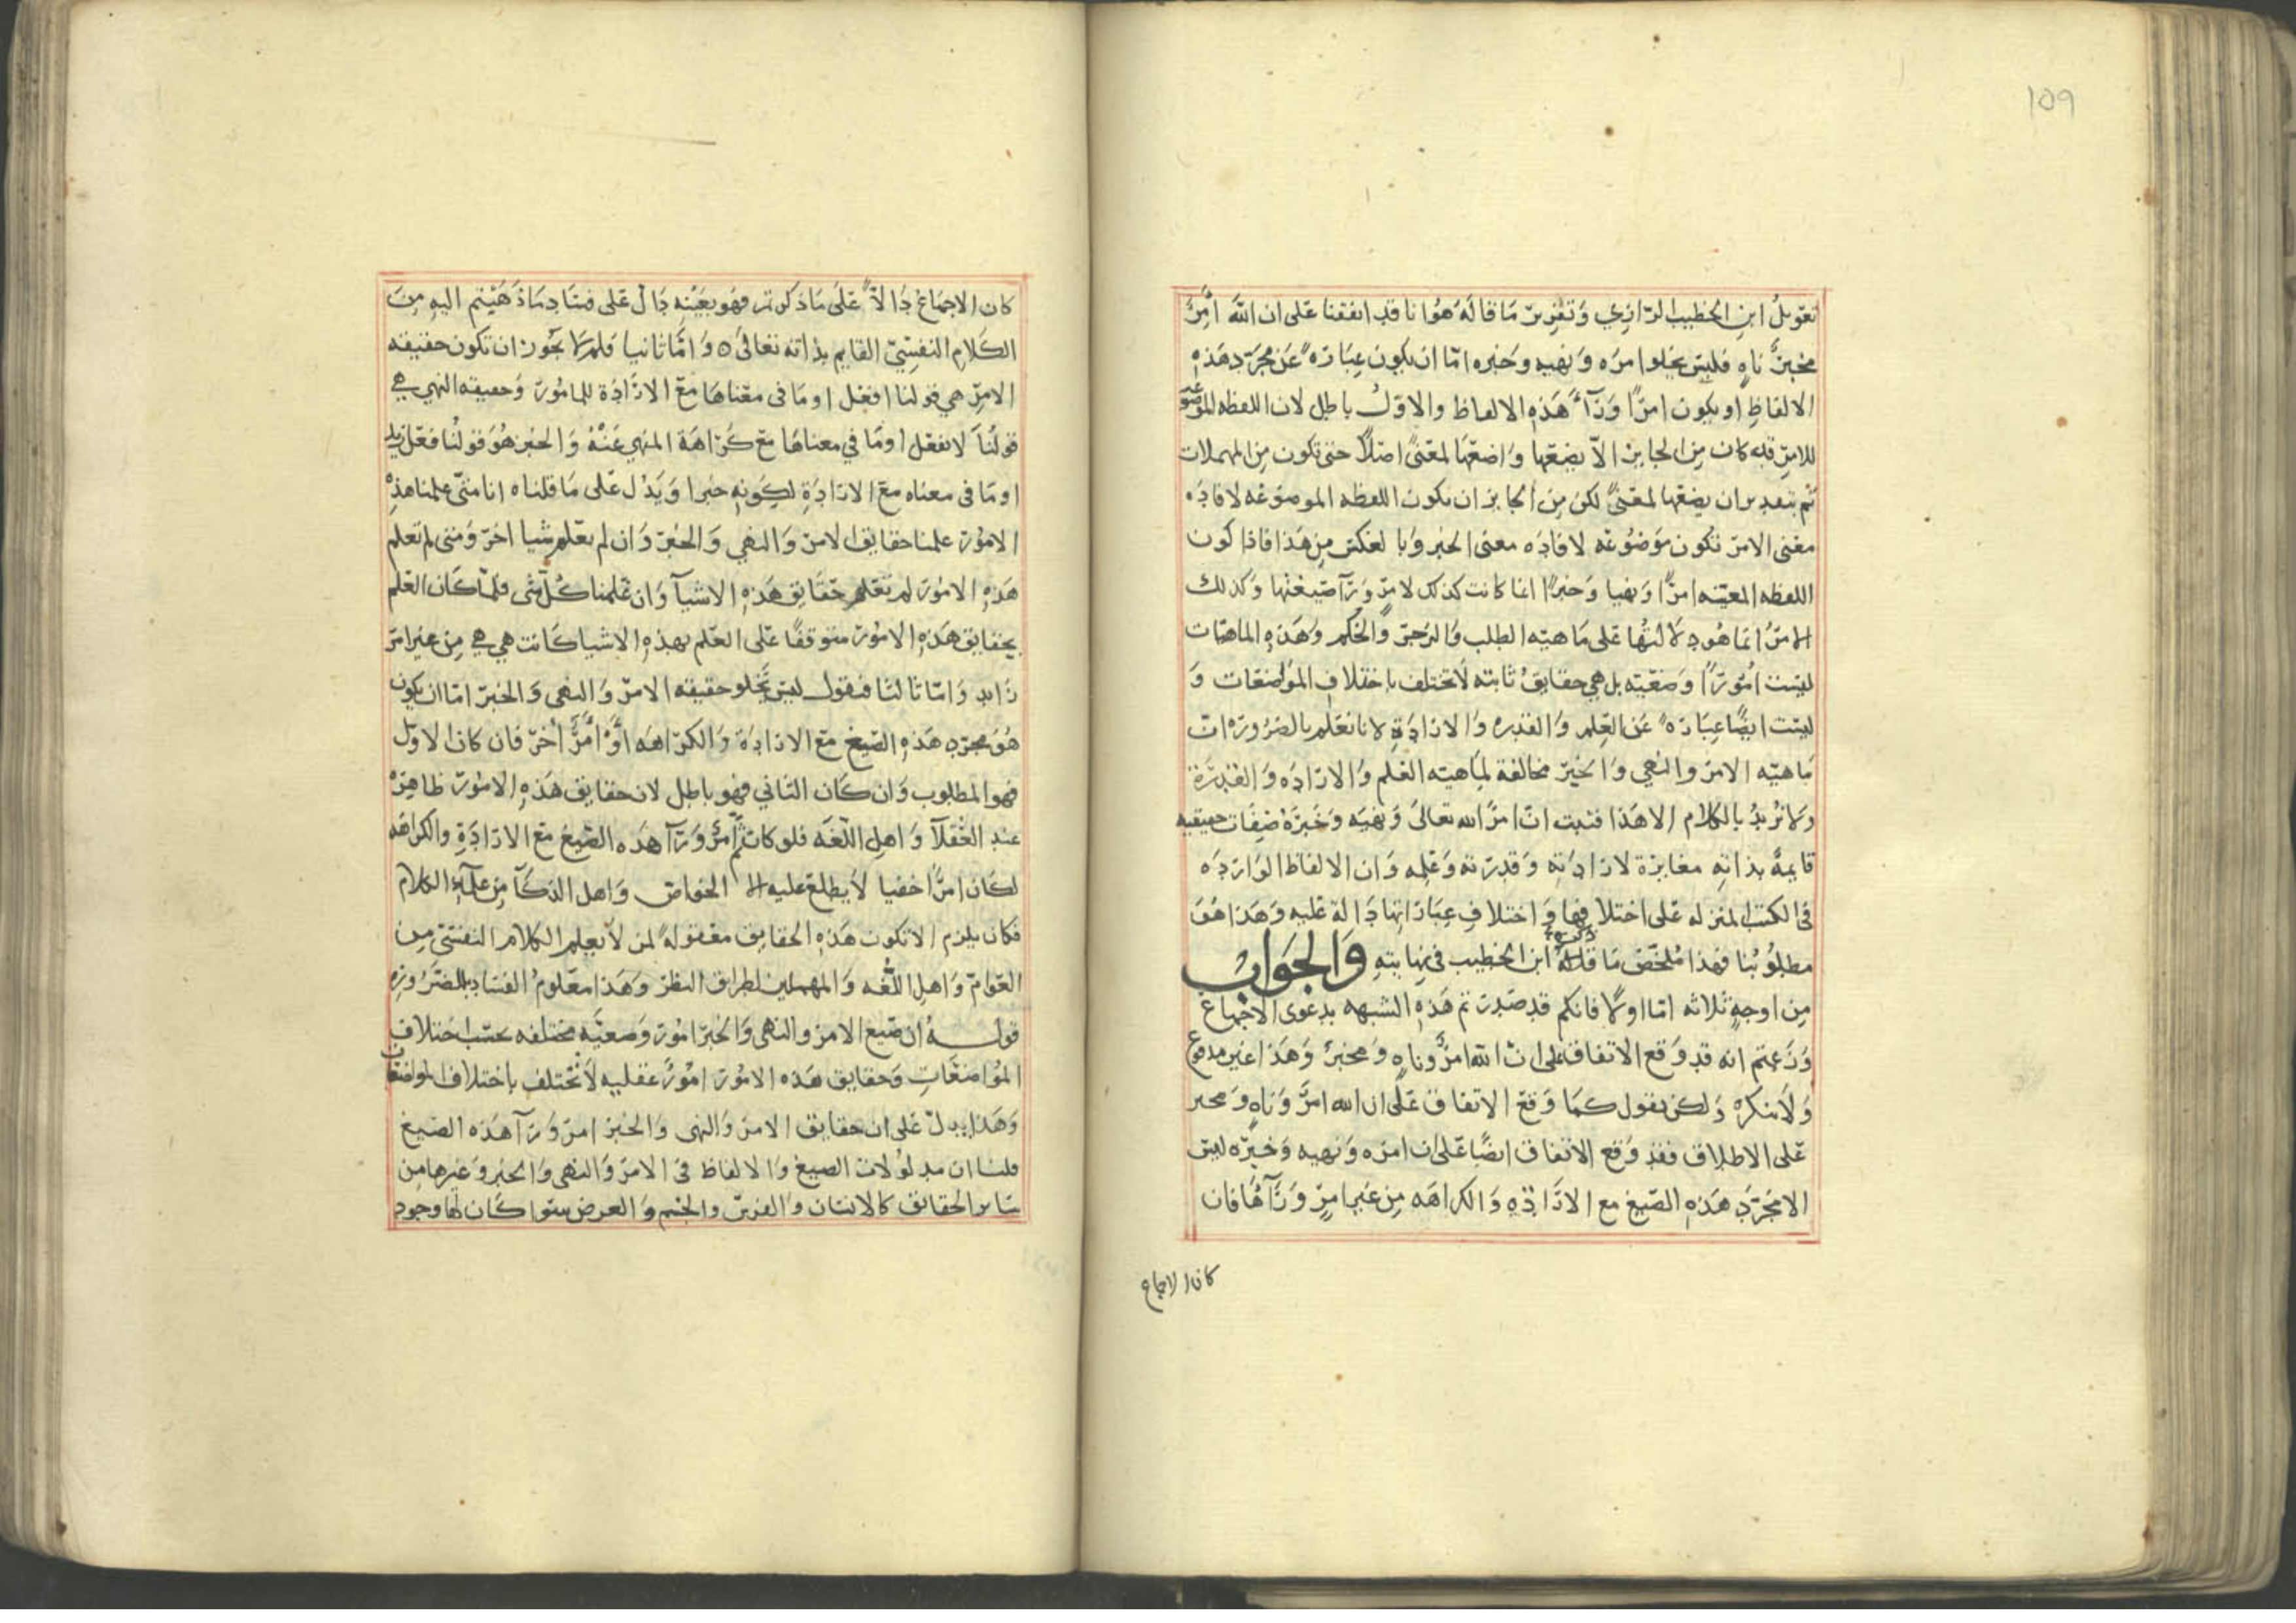 109
تعويلُ ابنِ الخطيب الرّازي وَتقرير مَا قالهُ هُوا ناقد اتفقنا على ان اللّهَ أمِرٌ
مخبرٌ ناهٍ فليس يخلوا امره وَنهيه وخبره امّا ان يكون عبَارةً عَن مجرّد هَذهِ
الالفاظِ او يكون امرًا وَرَآءَ هَذهِ الالفاظ والاوّلُ باطل لان اللفظه الموضوعه
للامرِ قد كان مِن الجايز الاّ يضعَها وَاضعهَا لمعنىً اصلًا حتى تكون مِن المهملات
ثم بتقدير ان يضعها لمعنىً لكن مِن الجايز ان يكون اللفظه الموضوعَه لافادَه
معَنى الامر تكون موَضوُعَه لافادَه معنى الخبر وَبا لعكس مِن هَذا فاذا كون
اللفظه المعيّنه امرًا وَنهيا وَخبرًا انما كانت كذلك لامرٍ وَرَآ صيغتها وَكذلك
الامرُ انما هُو دلالتُها على مَاهيّه الطلب وَالزجر وَالحُكم وَهَذهِ الماهيّات
ليسَت امُورًا وَضعيّه بل هي حقايقُ ثابته لاتختلف باختلاف المواضعات وَ
ليسَت ايضًا عبَارةً عَن العِلم وَالقدره وَالارَادَةِ لانا نعَلم بالضرُورَه انّ
مَاهيّه الامر والنهي وَالخبر مخالفة لمِاهيّه العَلم وَالارَادَه وَالقدرَة
وَلانُريدُ بالكلام الا هَذا فثبت انّ امرَ الله تعالىَ وَنهيَه وَخَبرَهُ صِفَات حقيقيه
قايمةً بذاتِه مغايرة لارادَته وَقدرَته وَعَلمِه وَان الالفاظ الوَاردَه
في الكتب المنزله عَلى اختلافها وَاختلافِ عبَارَاتها دَالّة عَليه وَهَذا هُوَ
مطلوُبُنا فهذا مُلخّص مَا ذكره ابن الخطيب في نهايتهِ وَالجَوَابُ
مِن اوجهٍ ثلاثه امّا اولًا فانكم قد صَدرتم هَذهِ الشبهه بدعوَى الاجمَاع
وَزَعمتم انه قد وَقع الاتفاق على انّ اللّه امرٌ وناهٍ وَمخبرٌ وَهَذا غير مدفوع
وَلاَ ننكره وَلكن نقول كمَا وَقع الاتفاق عَلَى ان الله امرٌ وَناهٍ وَمخبر
عَلى الاطلاق فقد وَقع الاتفاق ايضًا عَلىَ ان امرَه وَنهيه وَخبرَه ليس
الا مجَرّدَ هَذهِ الصّيغ مع الارَادَهِ وَالكراهَه مِن غير امرٍ وَرَآهَا فان
كان الاجماع
كان الاجمَاعُ دَالاًّ عَلَى مَا ذكرتم فهُو بعَينه دَالّ عَلى فسَاد مَا ذَهَبتم اليهِ مِنَ
الكَلام النفسِيّ القايم بذاته تعَالىَ ٥ وَامّا ثانيا فلم لا يجَوز ان تكون حقيقه
الامرِ هي قولنا افعَل او مَا في معَناهَا معَ الارَادَة للمامُور وَحقيقه النهي هي
قولنُا لاتفعَل او مَا في معناهَا معَ كرَاهَة المنهي عَنْهُ وَالخبر هُو قولنُا فعَل زيد
او مَا في معناه معَ الارادَةِ لِكَونهِ خبرا وَيَدُل عَلى مَا قلناه انا متى علمنا هذهِ
الامُور علمنا حقايق الامر وَالنهي وَالخبر وَان لم نعَلم شيا اخر وَمتى لم نعَلم
هَذهِ الامُورَ لم نعَلم حقَايق هَذهِ الاشيآ وَان عَلمنا كُلّ شى فلمّا كان العَلم
بحقايق هَذهِ الامُور متوقفًا عَلى العَلم بهذهِ الاشيا كَانت هي هي مِن غير امر
زَايد وَامّا ثالثا فنقول ليسَ تخَلو حقيقه الامر وَالنهى وَالخبر امّا ان يكون
هُوَ مجرّد هَذهِ الصّيغ معَ الارَادَة وَالكرَاهَه اوَْ امرٌ أخر فان كان الاول
فهو المطلوب وَان كان الثاني فهو باطل لان حقايق هَذهِ الامُور ظاهِرَه
عند العُقلآ وَاهل اللّغَه فلو كان ثَمّ امرٌ وَرَآ هَذه الصّيغ معَ الارَادَةِ والكراهَه
لكَان امرًا خفيا لاَ يطلع عليه الا الخوَاص وَاهل الذكآ مِن علمآءِ الكلام
فكان يلزم الا تكون هَذهِ الحقايق معَقوله لمن لا يعلم الكلام النفسّي مِن
العَوامّ وَاهل اللُّغه وَالمهملين لطرايق النظر وَهَذا معَلومُ الفسَاد بالضَرُورهِ
قولـــه ان صَيغ الامر والنهي وَالخبر امُور وَضعيَّه مختلفه بحسَب اختلاف
الموُاضعَاتِ وَحقايق هَذه الامُور امُورٌ عَقليه لاَ تختلف باختلاف المواضعات
وَهَذا يدلّ عَلى ان حقايق الامر وَالنهى وَالخبر امر وَرَآ هَذه الصيغ
قلنا ان مدلوُلات الصيغ وَالالفاظ في الامر وَالنهى وَالخبر وَغيرها مِن
سَاير الحقايق كالانسَان وَالفرس والجسْم وَالعرض سوا كَان لها وجود